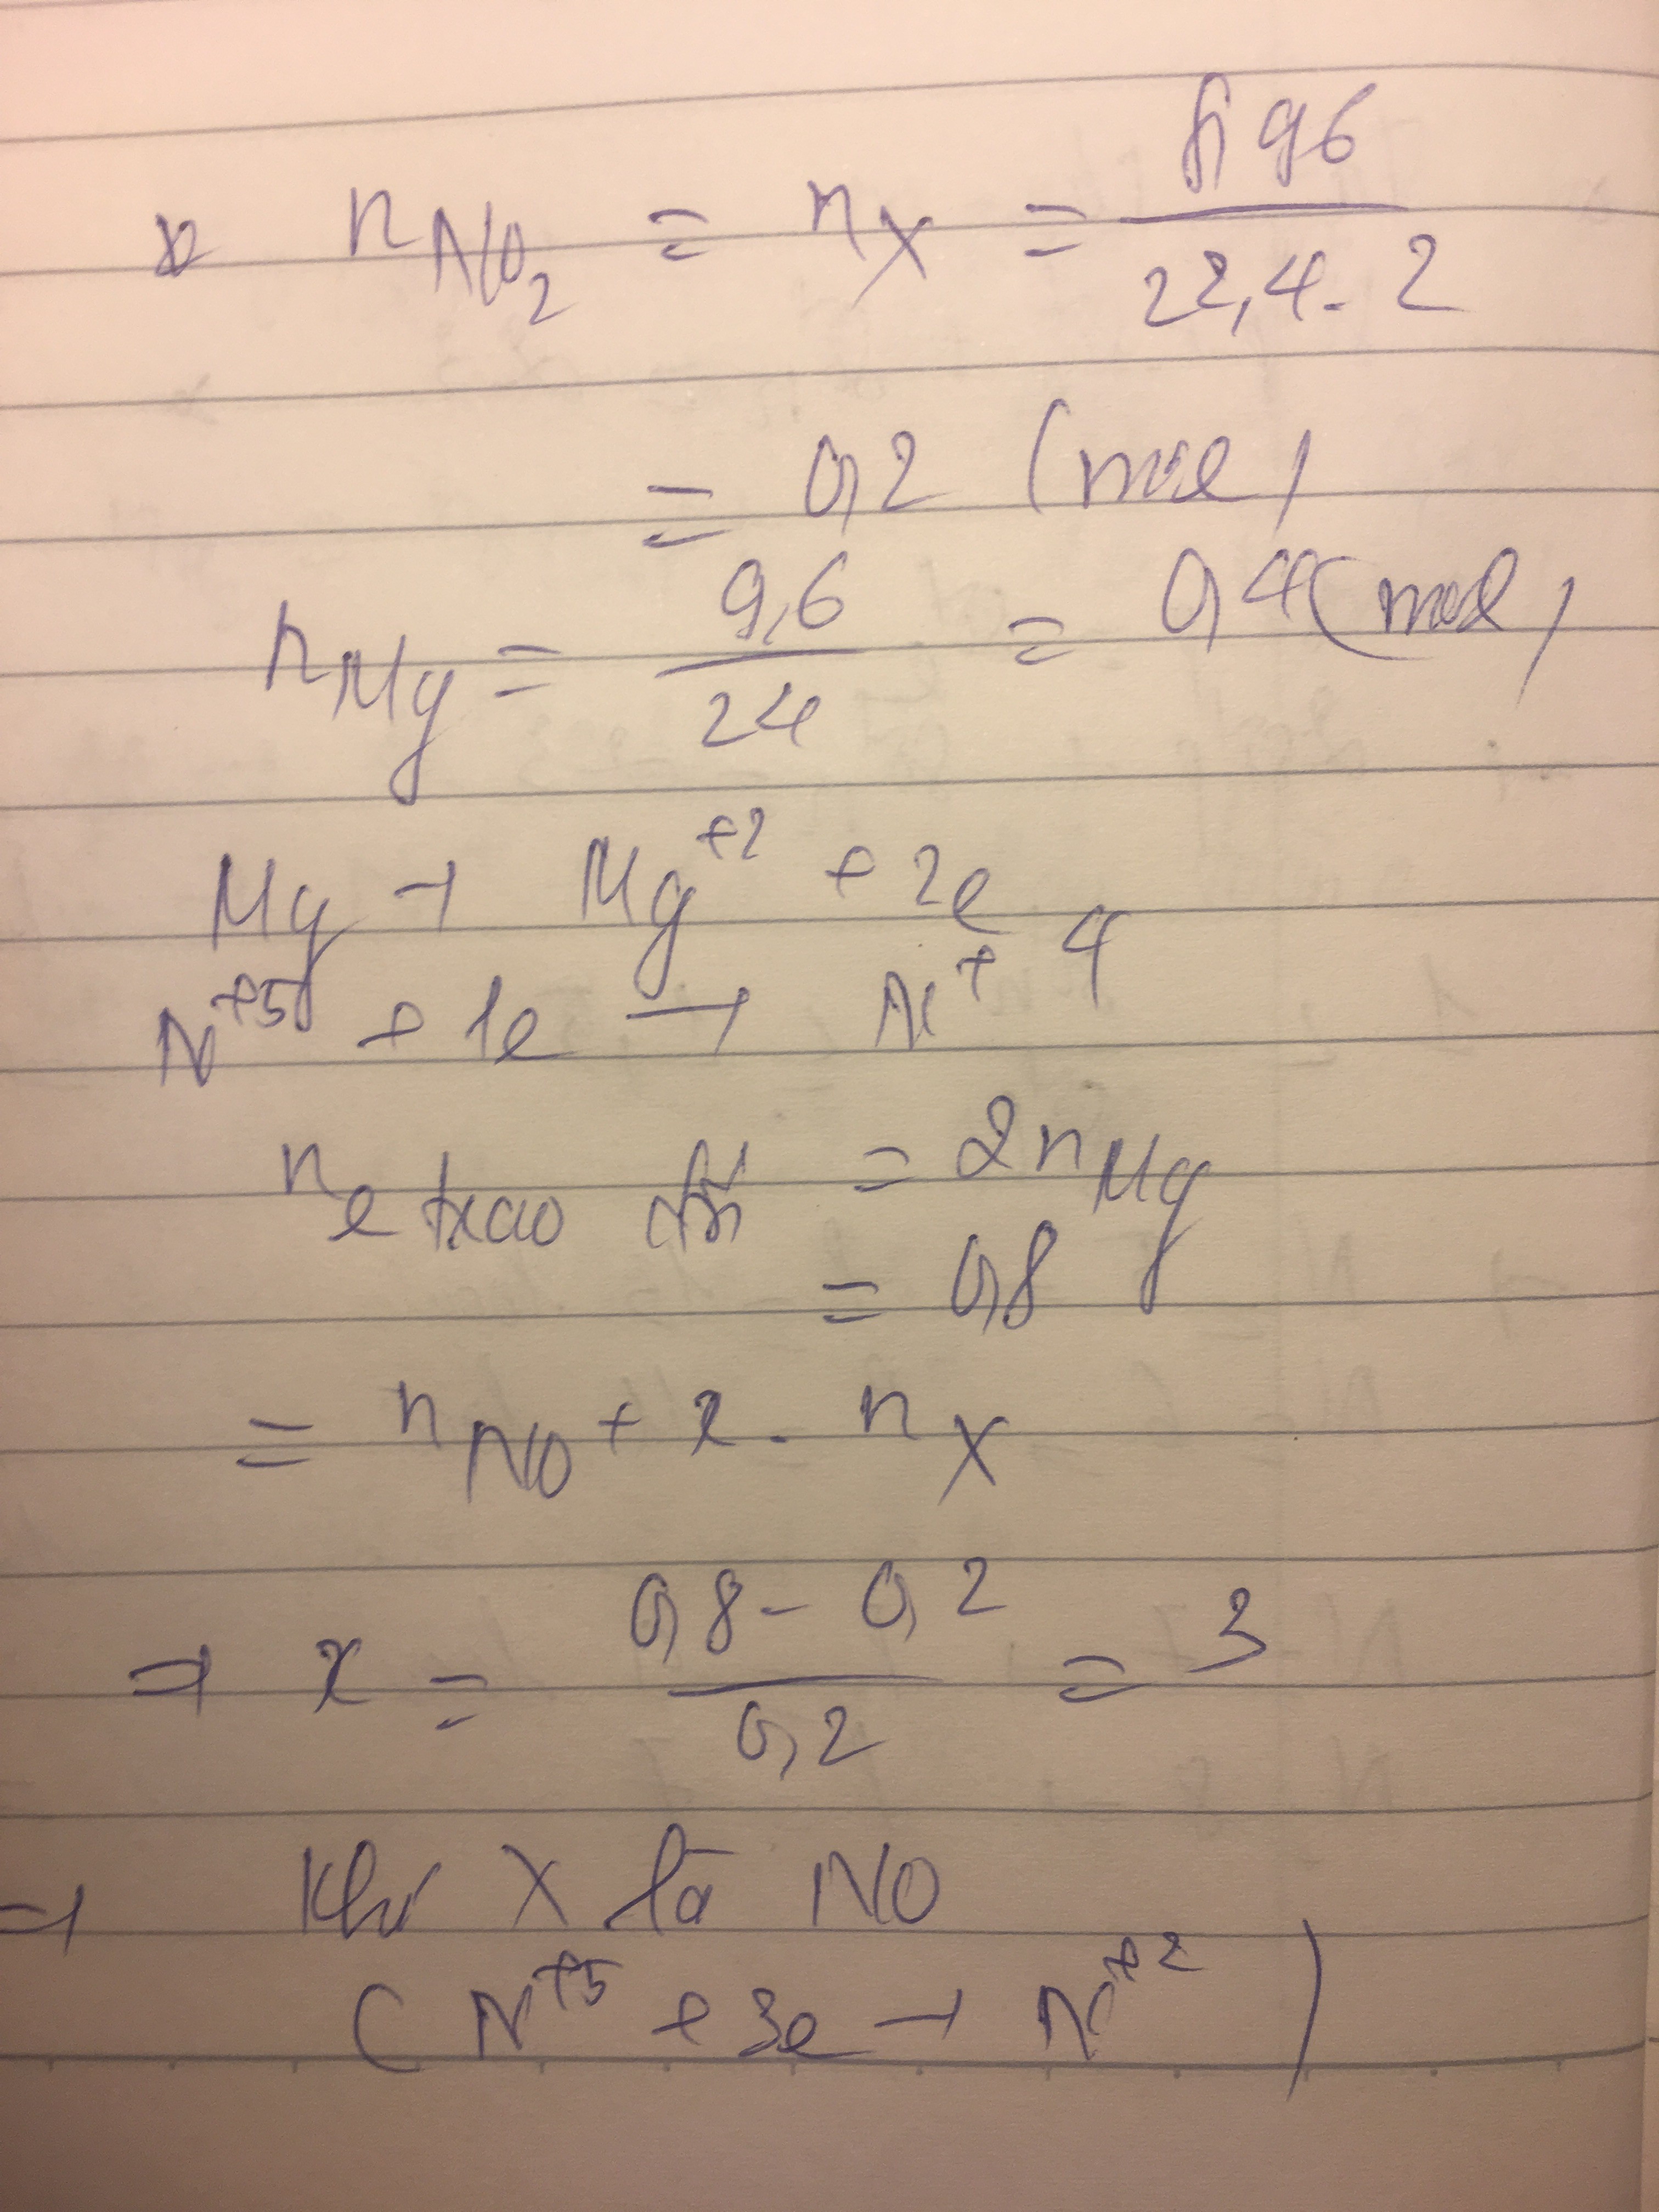 * nNO₂ = nX = 8,96 / 22,4 . 2
= 0,2 (mol)
nMg = 9,6 / 24 = 0,4 (mol)
Mg → Mg⁺² + 2e
N⁺⁵ + 1e → N⁺⁴
ne trao đổi = 2nMg
= 0,8
= nNO + x . nX
⇒ x = 0,8 - 0,2 / 0,2 = 3
→ Khí X là NO
( N⁺⁵ + 3e → N⁺² )